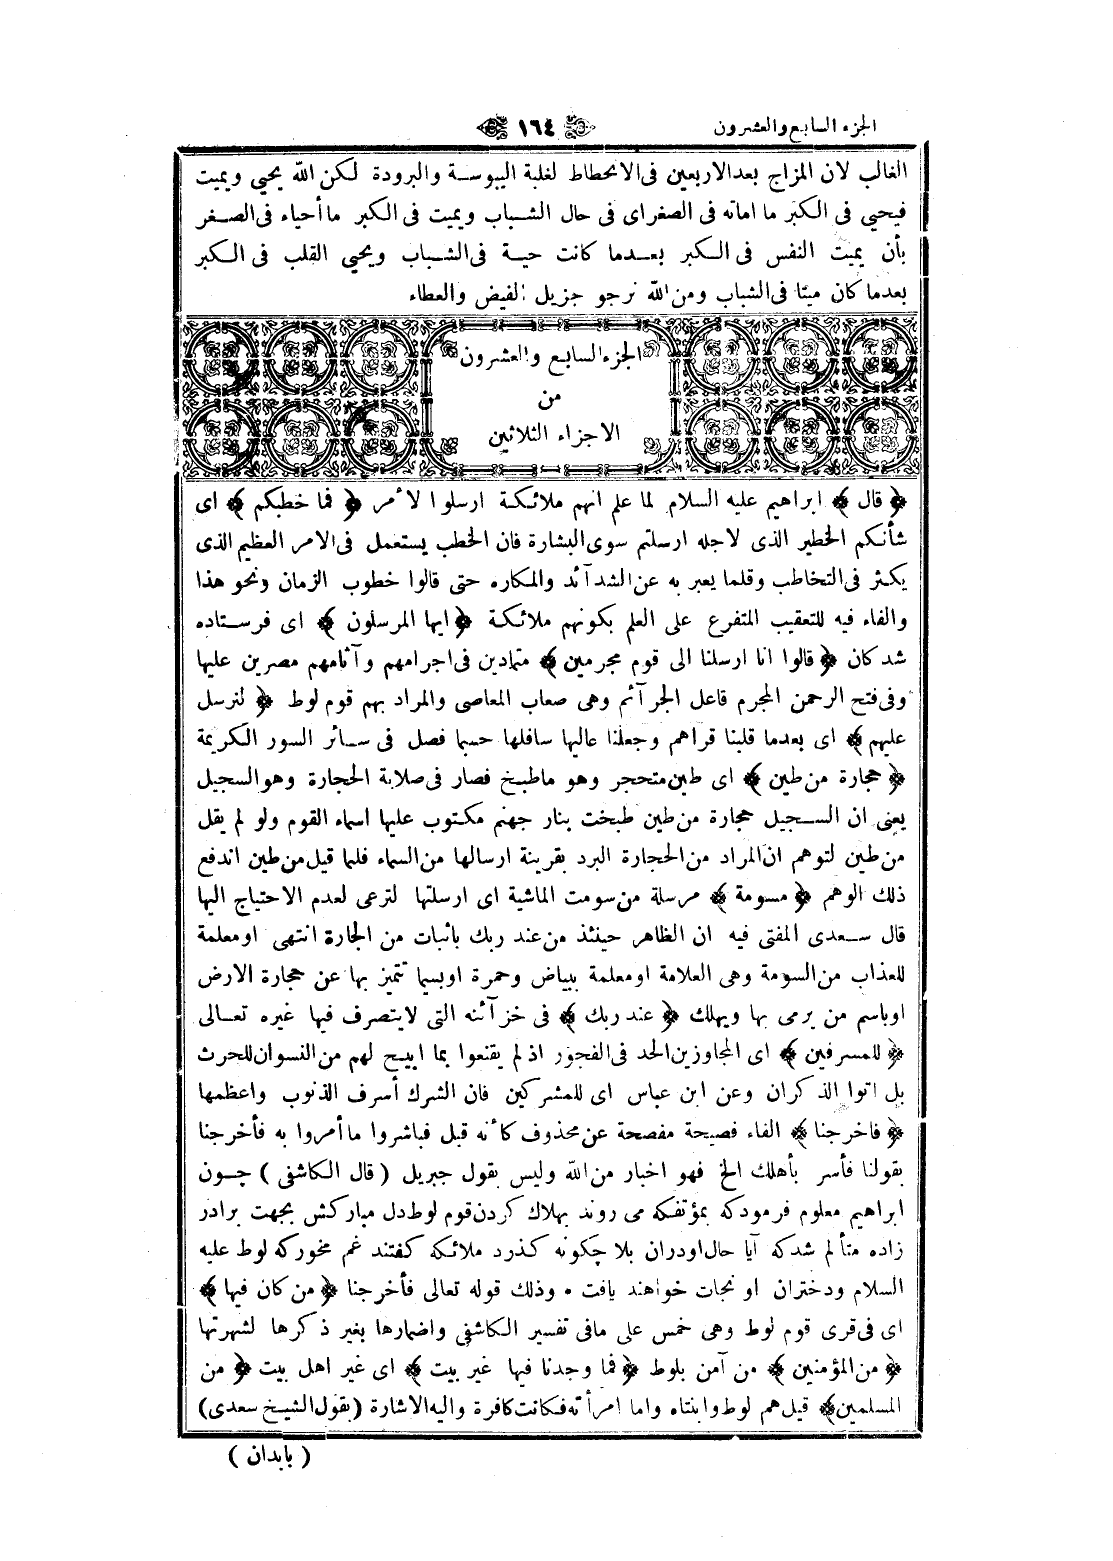 الجزء السابع والعشرون
١٦٤
الغالب لان المزاج بعدالاربعين فى الانحطاط لغلبة اليبوسة والبرودة لكن الله يحيى ويميت
فيحيى فى الكبر ما اماته فى الصغراى فى حال الشباب ويميت فى الكبر ماأحياه فى الصغر
بأن يميت النفس فى الكبر بعدما كانت حية فى الشباب ويحيى القلب فى الكبر
بعدما كان ميتا فى الشباب ومن الله نرجو جزيل الفيض والعطاء
الجزء السابع والعشرون
من
الاجزاء الثلاثين
﴿ قال ﴾ ابراهيم عليه السلام لما علم انهم ملائكة ارسلوا لأمر ﴿ فما خطبكم ﴾ اى
شأنكم الخطير الذى لاجله ارسلتم سوى البشارة فان الخطب يستعمل فى الامر العظيم الذى
يكثر فى التخاطب وقلما يعبر به عن الشدآئد والمكاره حتى قالوا خطوب الزمان ونحو هذا
والفاء فيه للتعقيب المتفرع على العلم بكونهم ملائكة ﴿ ايها المرسلون ﴾ اى فرستاده
شد كان ﴿ قالوا انا ارسلنا الى قوم مجرمين ﴾ متمادين فى اجرامهم وآثامهم مصرين عليها
وفى فتح الرحمن المجرم فاعل الجرآئم وهى صعاب المعاصى والمراد بهم قوم لوط ﴿ لنرسل
عليهم ﴾ اى بعدما قلبنا قراهم وجعلنا عاليها سافلها حسبما فصل فى سائر السور الكريمة
﴿ حجارة من طين ﴾ اى طين متحجر وهو ماطبخ فصار فى صلابة الحجارة وهو السجيل
يعنى ان السجيل حجارة من طين طبخت بنار جهنم مكتوب عليها اسماء القوم ولو لم يقل
من طين لتوهم ان المراد من الحجارة البرد بقرينة ارسالها من السماء فلما قيل من طين اندفع
ذلك الوهم ﴿ مسومة ﴾ مرسلة من سومت الماشية اى ارسلتها لترعى لعدم الاحتياج اليها
قال سعدى المفتى فيه ان الظاهر حينئذ من عند ربك باثبات من الجارة انتهى اومعلمة
للعذاب من السومة وهى العلامة اومعلمة ببياض وحمرة اوبسيما تتميز بها عن حجارة الارض
اوباسم من يرمى بها ويهلك ﴿ عند ربك ﴾ فى خزآئنه التى لايتصرف فيها غيره تعالى
﴿ للمسرفين ﴾ اى المجاوزين الحد فى الفجور اذ لم يقنعوا بما ابيح لهم من النسوان للحرث
بل اتوا الذكران وعن ابن عباس اى للمشركين فان الشرك أسرف الذنوب واعظمها
﴿ فاخرجنا ﴾ الفاء فصيحة مفصحة عن محذوف كأنه قيل فباشروا ماأمروا به فأخرجنا
بقولنا فأسر بأهلك الخ فهو اخبار من الله وليس بقول جبريل ( قال الكاشفى ) چون
ابراهيم معلوم فرمودكه بمؤتفكه مى روند بهلاك كردن قوم لوط دل مباركش بجهت برادر
زاده متألم شدكه آيا حال اودران بلا چكونه كذرد ملائكه كفتند غم مخوركه لوط عليه
السلام ودختران او نجات خواهند يافت • وذلك قوله تعالى فأخرجنا ﴿ من كان فيها ﴾
اى فى قرى قوم لوط وهى خمس على مافى تفسير الكاشفى واضمارها بغير ذكرها لشهرتها
﴿ من المؤمنين ﴾ من آمن بلوط ﴿ فما وجدنا فيها غير بيت ﴾ اى غير اهل بيت ﴿ من
المسلمين ﴾ قيل هم لوط وابنتاه واما امرأته فكانت كافرة واليه الاشارة (بقول الشيخ سعدى)
( بابدان )